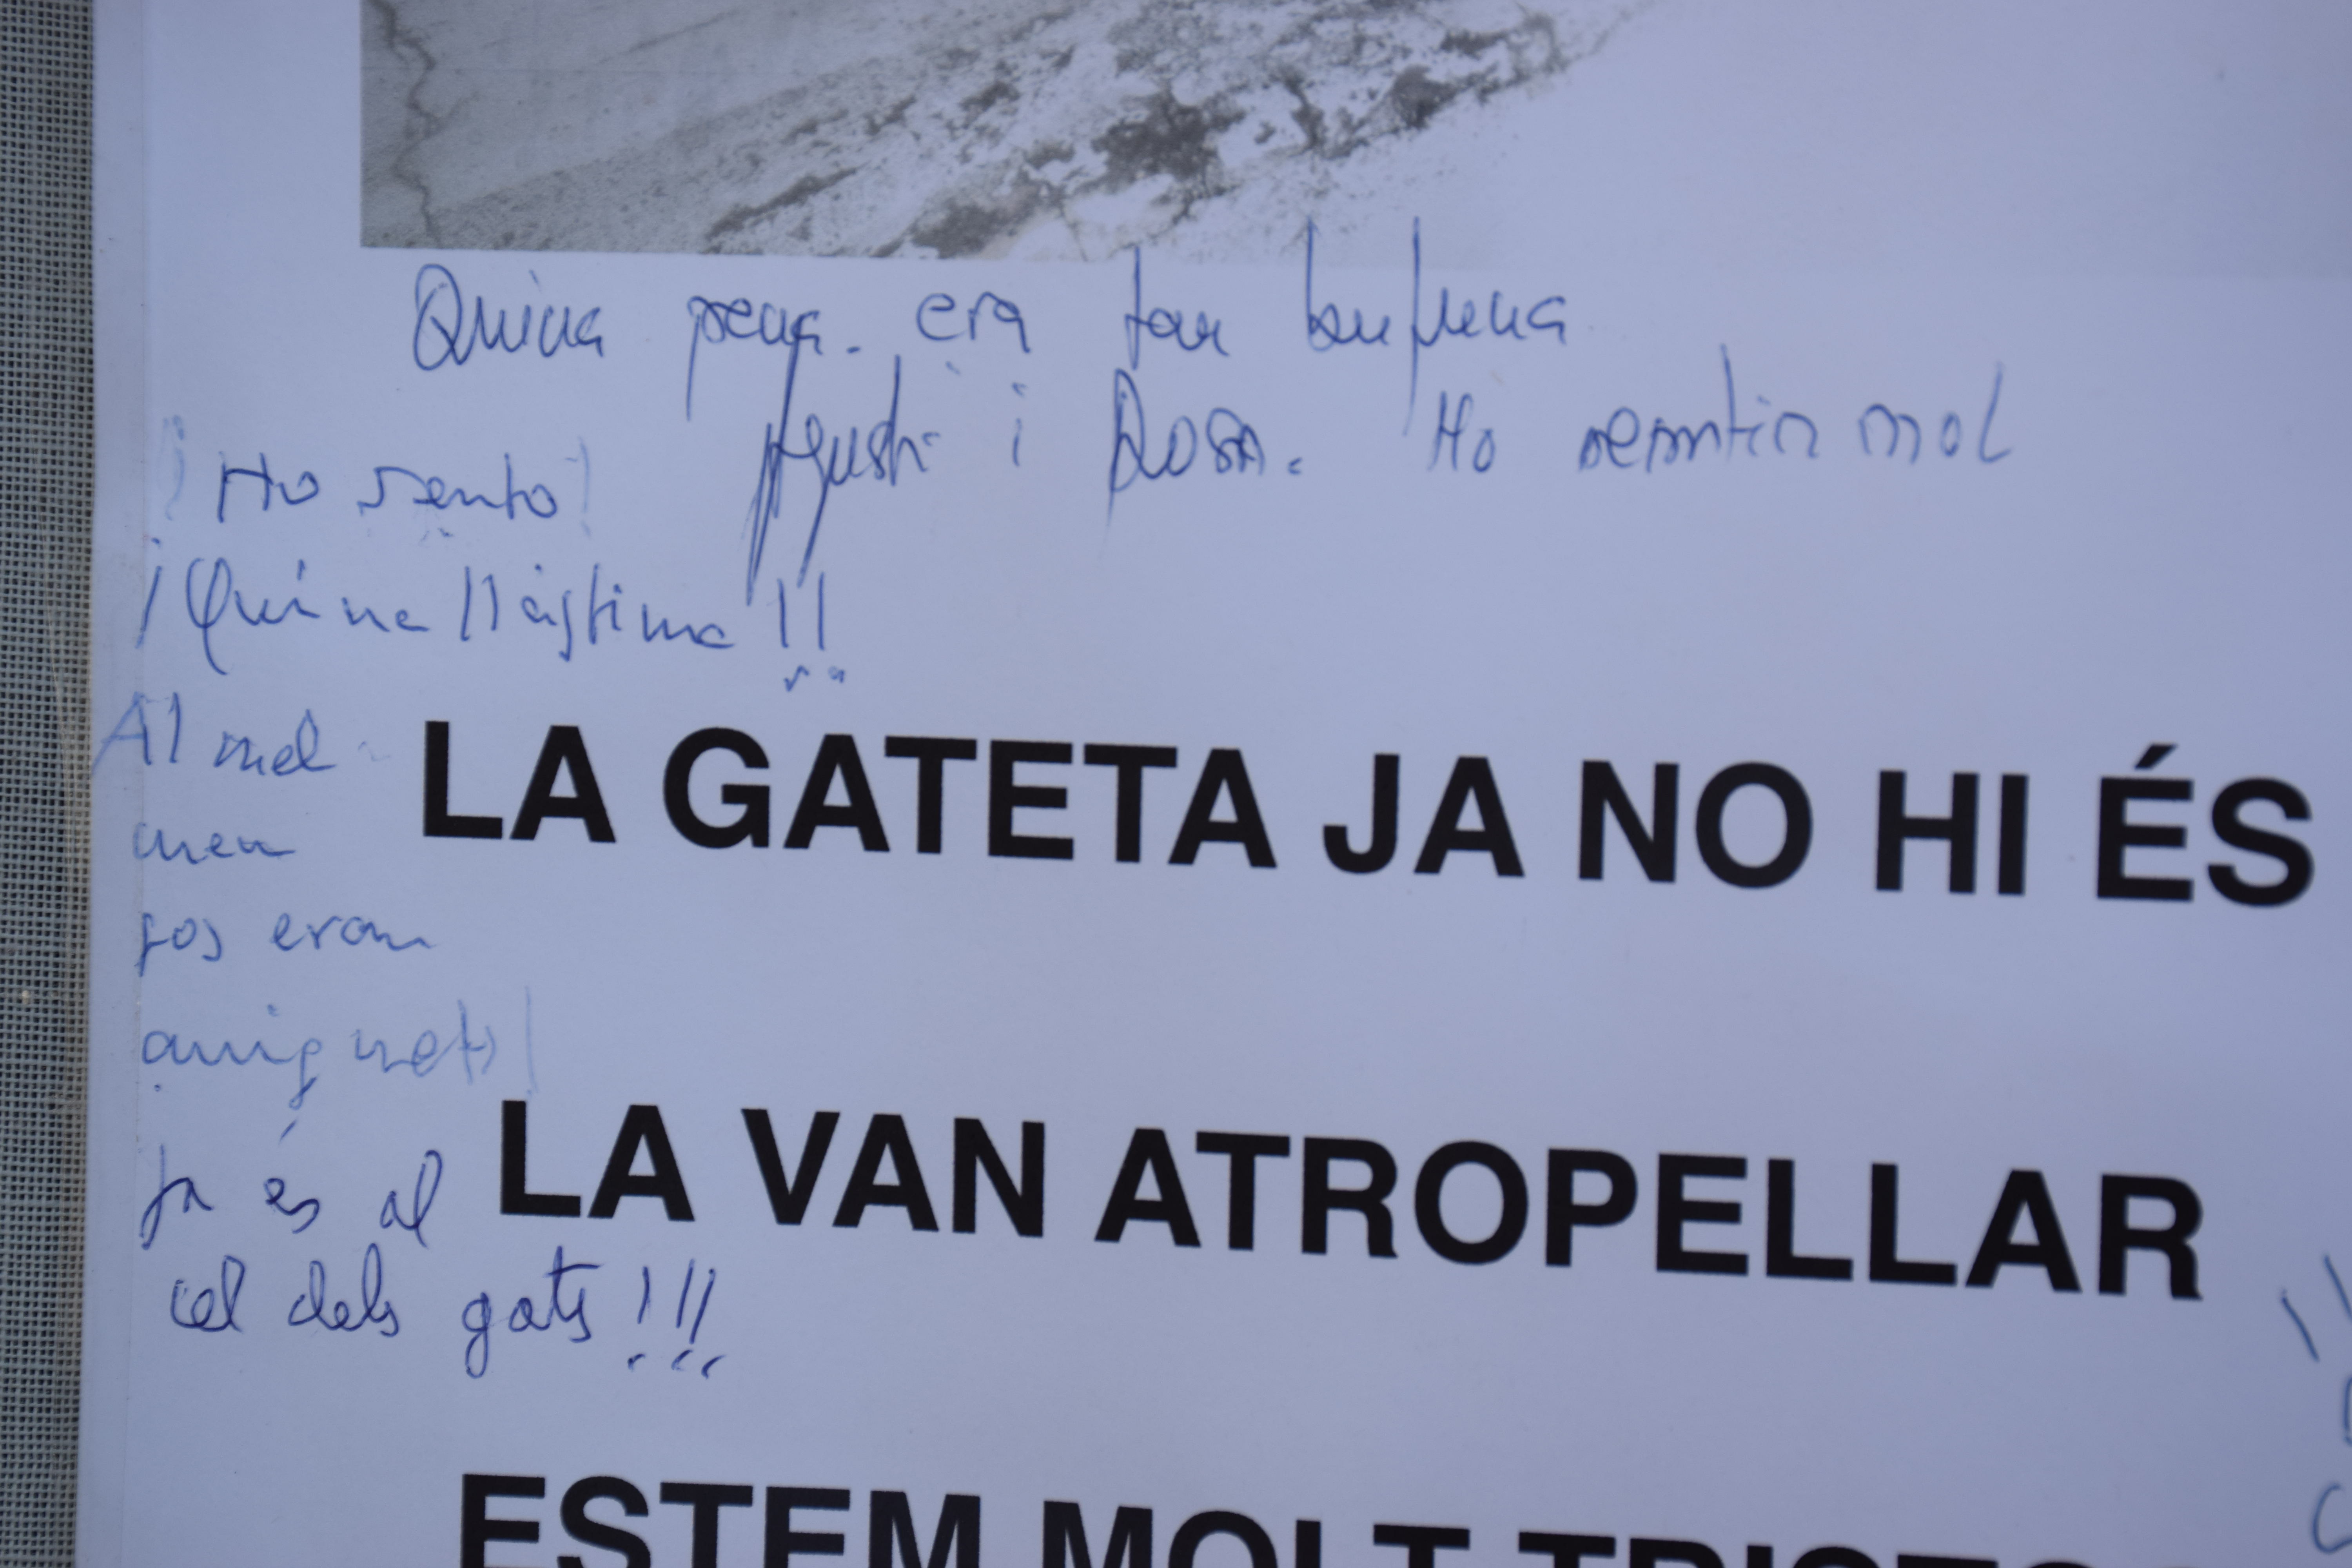 Quina pena. era tan bufona
Agustí i Rosa. Ho sentim mol
¡Ho sento!
¡Quina llàstima!!
Al mel
meu
LA GATETA JA NO HI ÉS
gos eran
amiguets!
LA VAN ATROPELLAR
Ja és al
cel dels gats!!!
ESTEM MOLT TRISTOS